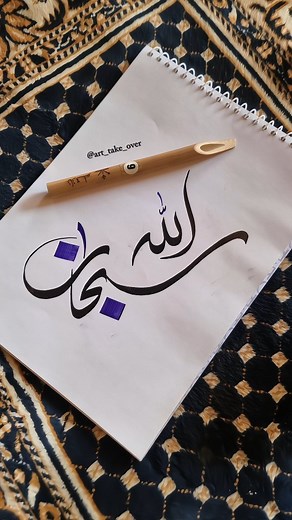 @art_take_over
6
سبحان الله